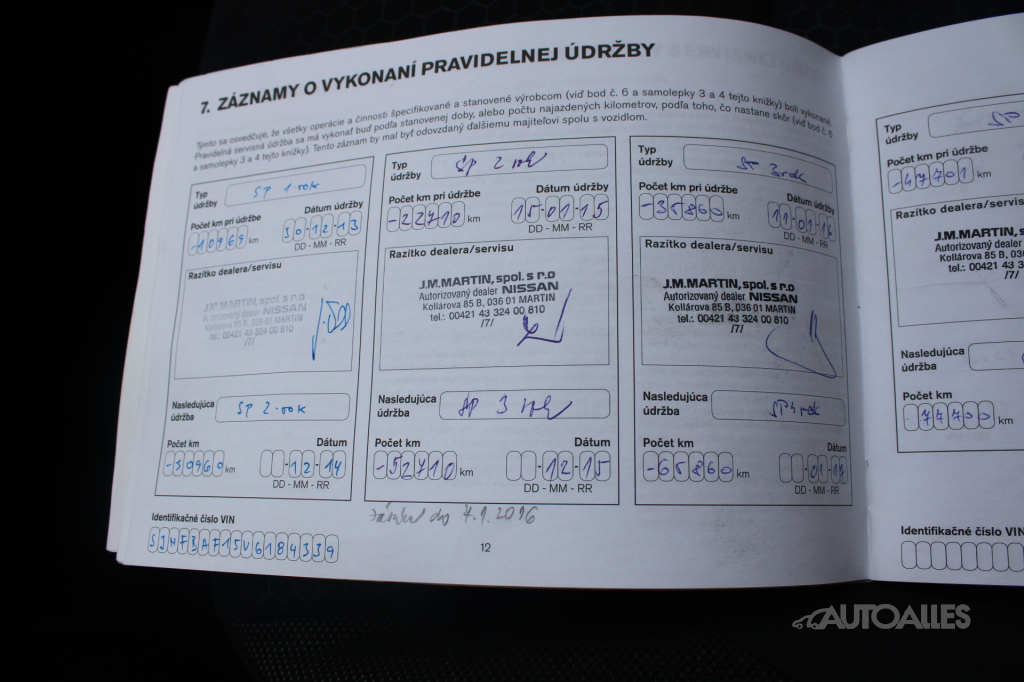 7. ZÁZNAMY O VYKONANÍ PRAVIDELNEJ ÚDRŽBY
Týmto sa osvedčuje, že všetky operácie a činnosti špecifikované a stanovené výrobcom (viď bod č. 6 a samolepky 3 a 4 tejto knižky) boli vykonané.
Pravidelná servisná údržba sa má vykonať buď podľa stanovenej doby, alebo počtu najazdených kilometrov, podľa toho, čo nastane skôr (viď bod č. 6
a samolepky 3 a 4 tejto knižky). Tento záznam by mal byť odovzdaný ďalšiemu majiteľovi spolu s vozidlom.
Typ údržby SP 1. rok
Počet km pri údržbe Dátum údržby
-10969 km 30-12-13
DD - MM - RR
Razítko dealera/servisu
J.M.MARTIN, spol. s r.o
Autorizovaný dealer NISSAN
Kollárova 85 B, 036 01 MARTIN
tel.: 00421 43 324 00 810
/7/
Nasledujúca údržba SP 2. rok
Počet km Dátum
-30960 km -12-14
DD - MM - RR
Typ údržby SP 2 rok
Počet km pri údržbe Dátum údržby
-22710 km 15-01-15
DD - MM - RR
Razítko dealera/servisu
J.M.MARTIN, spol. s r.o
Autorizovaný dealer NISSAN
Kollárova 85 B, 036 01 MARTIN
tel.: 00421 43 324 00 810
/7/
Nasledujúca údržba SP 3 rok
Počet km Dátum
-52710 km -12-15
DD - MM - RR
7.1.2016
Typ údržby SP 3 rok
Počet km pri údržbe Dátum údržby
-35860 km 11-01-16
DD - MM - RR
Razítko dealera/servisu
J.M.MARTIN, spol. s r.o
Autorizovaný dealer NISSAN
Kollárova 85 B, 036 01 MARTIN
tel.: 00421 43 324 00 810
/7/
Nasledujúca údržba SP 4 rok
Počet km Dátum
-65860 km -01-17
DD - MM - RR
Identifikačné číslo VIN
SJNFBAF15V6184339
12
Typ údržby SP
Počet km pri údržbe
-47701 km
Razítko dealera/servisu
J.M.MARTIN,
Autorizovaný dealer
Kollárova 85 B, 036
tel.: 00421 43
Nasledujúca údržba
Počet km
-77700 km
Identifikačné číslo VIN
AUTOALLES